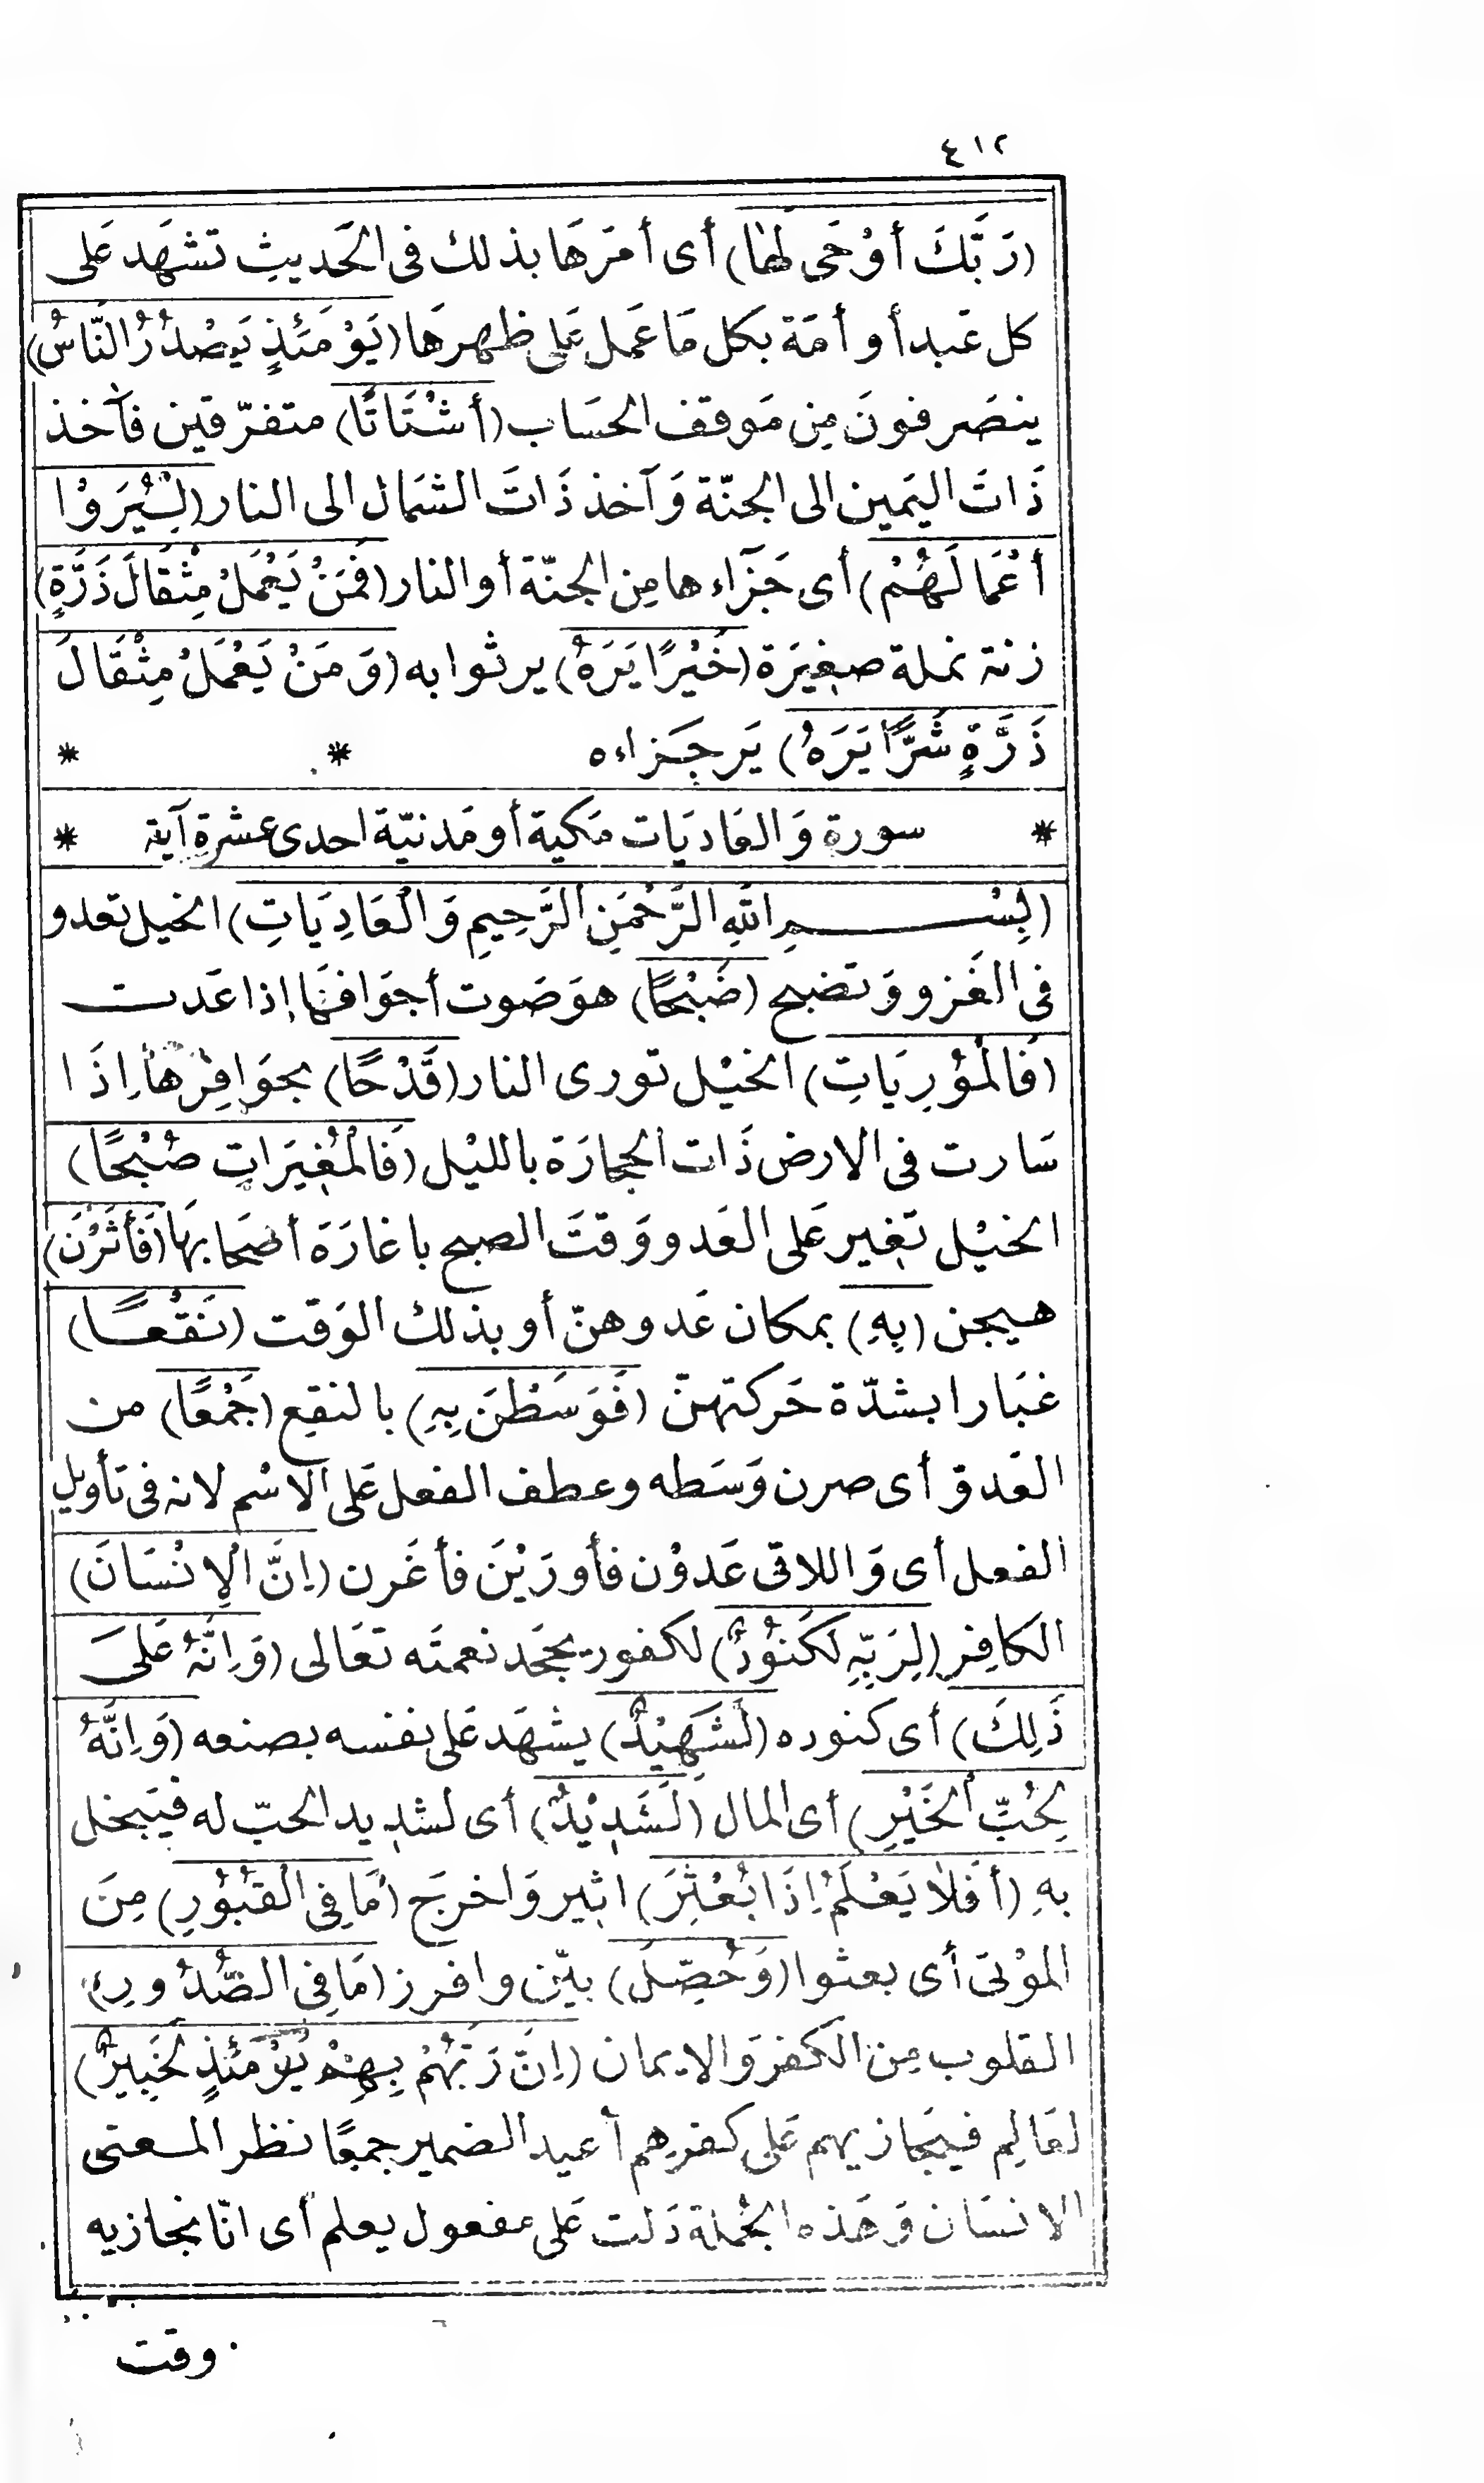 ٤١٢
(رَبَّكَ أَوْحَى لَهَا) أى أمَرهَا بذلك فى الحَديثِ تشهَد عَلى
كل عَبد أو أمَة بكل مَا عَمل عَلى ظهرهَا (يَوْمَئِذٍ يَصْدُرُ النَّاسُ)
ينصَرفونَ مِن مَوقف الحسَاب (أَشْتَاتًا) متفرّقين فآخذ
ذَاتَ اليَمين الى الجنّة وَآخذ ذَاتَ الشمَال الى النار (لِيُرَوْا
أَعْمَالَهُمْ) أى جَزَآءها مِن الجنّة أو النار (فَمَنْ يَعْمَلْ مِثْقَالَ ذَرَّةٍ)
زنة نملة صغِيرَة (خَيْرًا يَرَهُ) ير ثوابه (وَمَنْ يَعْمَلْ مِثْقَالَ
ذَرَّةٍ شَرًّا يَرَهُ) يَر جَزاءه * *
* سورة وَالعَاديَات مَكية أو مَدنيّة احدى عشرة آية *
(بِسْمِ اللهِ الرَّحْمَنِ الرَّحِيمِ وَالْعَادِيَاتِ) الخيل تعدو
فى الغَزو وَتضبح (ضَبْحًا) هوَ صَوت أجوَافهَا إذا عَدت
(فَالْمُوْرِيَاتِ) الخيْل تورى النار (قَدْحًا) بحوَافِرْهَا اِذَا
سَارت فى الارض ذَات الحجارَة بالليْل (فَالْمُغِيرَاتِ صُبْحًا)
الخيْل تَغير عَلى العَدو وَقتَ الصبح باغارَة أصحَابهَا (فَأَثَرْنَ)
هيجن (بِهِ) بمكان عَدوهنّ أو بذلك الوَقت (نَقْعًا)
غبَارا بشدّة حَركتهنّ (فَوَسَطْنَ بِهِ) بالنقع (جَمْعًا) من
العَدوّ أى صرن وَسَطه وعطف الفعل عَلى الاسْم لانه فى تأويل
الفعل أى وَاللاتى عَدوْن فأورَيْنَ فأغَرن (اِنَّ الْاِنْسَانَ)
الكافِر (لِرَبِّهِ لَكَنُوْدٌ) لكفور يجحَد نعمتَه تعَالى (وَاِنَّهُ عَلَى
ذَلِكَ) أى كنوده (لَشَهِيْدٌ) يشهَد عَلى نفسه بصنعه (وَاِنَّهُ
لِحُبِّ الْخَيْرِ) أى المال (لَشَدِيْدٌ) أى لشديد الحبّ له فيَبخل
بهِ (أَفَلَا يَعْلَمُ اِذَا بُعْثِرَ) اثير وَاخرجَ (مَا فِى الْقُبُوْرِ) مِنَ
الموْتىَ أى بعثوا (وَحُصِّلَ) بيّن وافرز (مَا فِى الصُّدُورِ)
القلوب مِن الكفر وَالايمان (اِنَّ رَبَّهُمْ بِهِمْ يَوْمَئِذٍ لَخَبِيرٌ)
لعَالِم فيجَازيهم عَلى كفرهم أعيد الضمير جمعًا نظر المعنى
الانسَان وَهَذه الجُملة دَلت عَلى مفعول يعلم أى انّا نجازيه
وقت